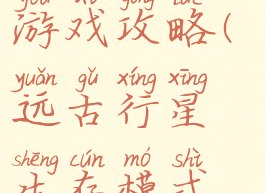 游戏攻略(
yuǎn gǔ xíng xīng
远古行星
shēng cún mó shì
生存模式